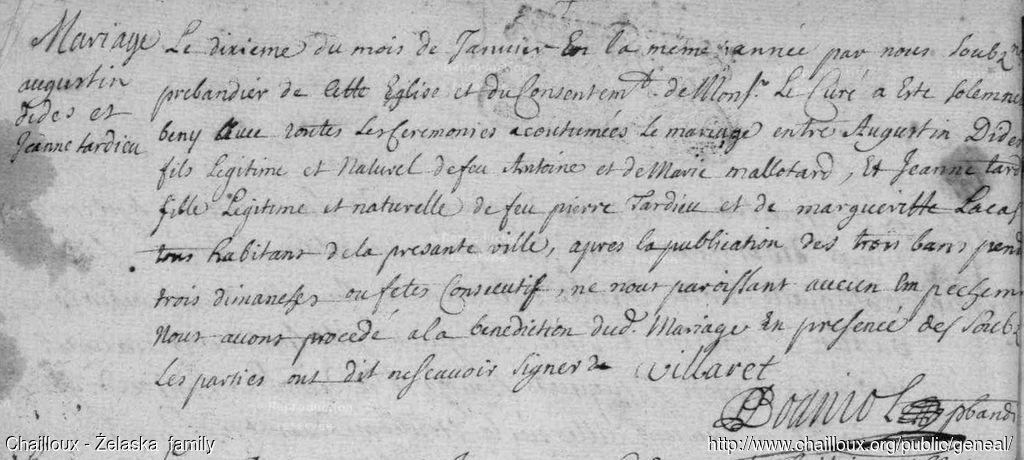 Mariage
augustin
dides et
Jeanne tardieu
Le dixieme du mois de Janvier En la meme année par nous soubz
prebandier de cette Eglise et du Consentemt. de Monsr. Le Curé a Esté solemne
beny avec toutes Les Ceremonies acoutumées Le mariage entre Augustin Dides
fils Legitime et Naturel de feu Antoine et de Marie mallotard, Et Jeanne tard
fille Legitime et naturelle de feu pierre Tardieu et de margueritte Lacas
tous habitant de la presante ville, apres la publication des trois bans pend
trois dimanches ou fetes Consecutif, ne nous paroissant aucun Empechem
Nous avons procedé a la benediction dud. Mariage En presence des soub
Les parties ont dit ne scavoir signer de Villaret
pbandi
Chailloux - Żelaska family
http://www.chailloux.org/public/geneal/